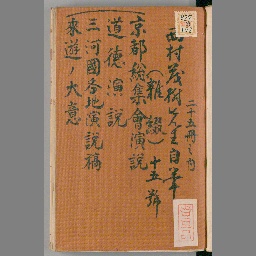 西村茂樹先生自筆
二十五冊之内
(雑綴)十五號
京都総集會演説
道德演説
三河國各地演説稿
来遊ノ大意